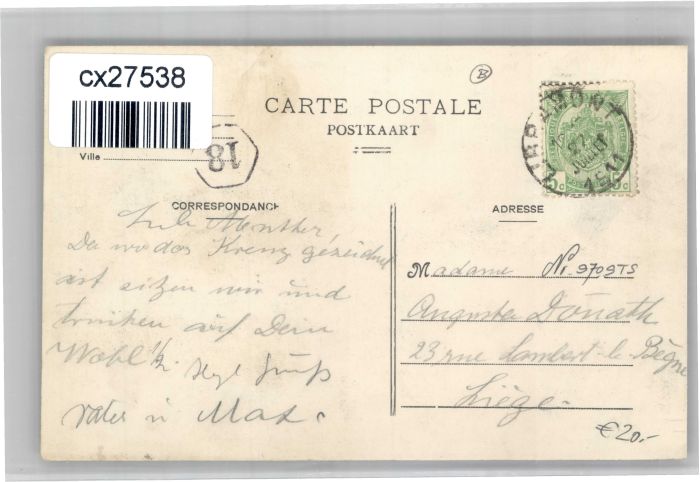 cx27538
B
CARTE POSTALE
POSTKAART
Ville
18
LIBRAMONT
27
JUILLET
1911
5c 5c
CORRESPONDANCE
ADRESSE
Da wo das Kreuz gezeichnet
ist sitzen wir und
trinken auf Dein
Wohl
Hzl Gruß
Vater u Max.
Madame Nr. 9709TS
Augusta Donath
23 rue Lambert-le-Bègue
Liège.
€20.-